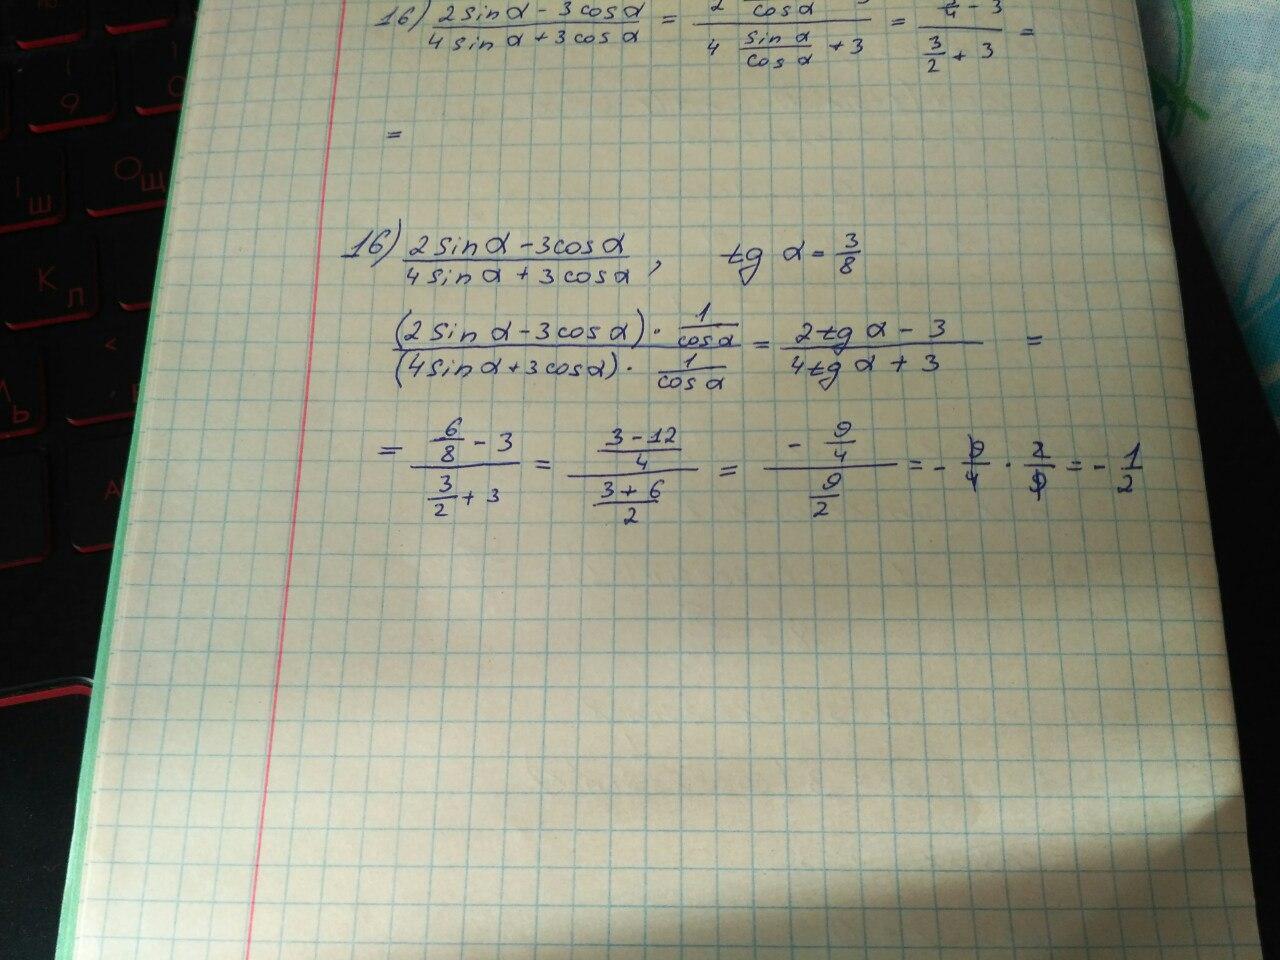 16) (2 sin α - 3 cos α)/(4 sin α + 3 cos α) = (2 /cos α)/(4 sin α/cos α + 3) = (/4 - 3)/(3/2 + 3) =
=
16) (2 sin α - 3 cos α)/(4 sin α + 3 cos α), tg α = 3/8
((2 sin α - 3 cos α) · 1/cos α)/((4 sin α + 3 cos α) · 1/cos α) = (2 tg α - 3)/(4 tg α + 3) =
= (6/8 - 3)/(3/2 + 3) = ((3 - 12)/4)/((3 + 6)/2) = (- 9/4)/(9/2) = - 9/4 · 2/9 = - 1/2
9
О
Ш
Щ
К
Л
Ь